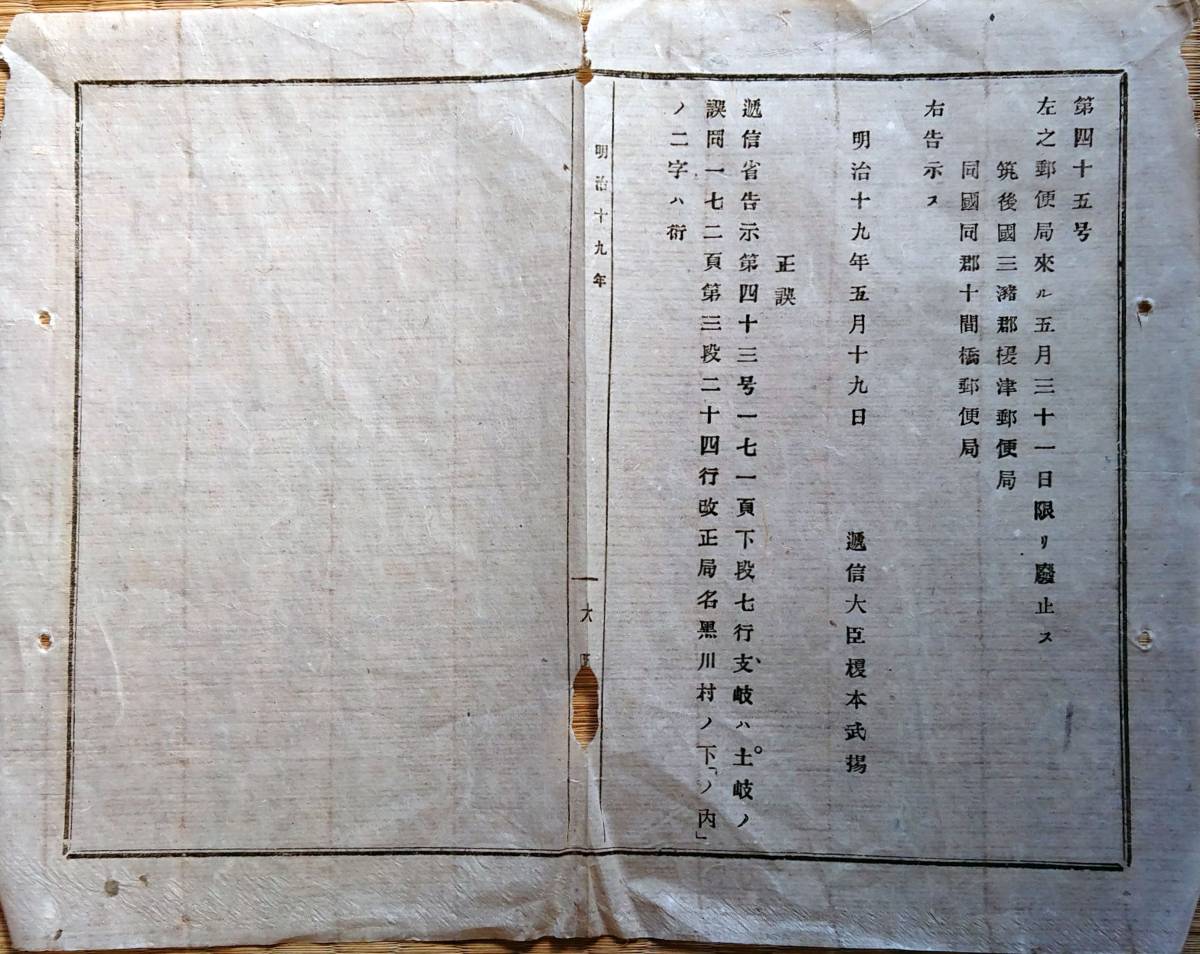 第四十五号
左之郵便局來ル五月三十一日限リ廢止ス
筑後國三潴郡榎津郵便局
同國同郡十間橋郵便局
右告示ス
明治十九年五月十九日
遞信大臣榎本武揚
正誤
遞信省告示第四十三号一七一頁下段七行支、岐ハ土゜岐ノ
誤同一七二頁第三段二十四行改正局名黑川村ノ下「ノ内」
ノ二字ハ衍
明治十九年